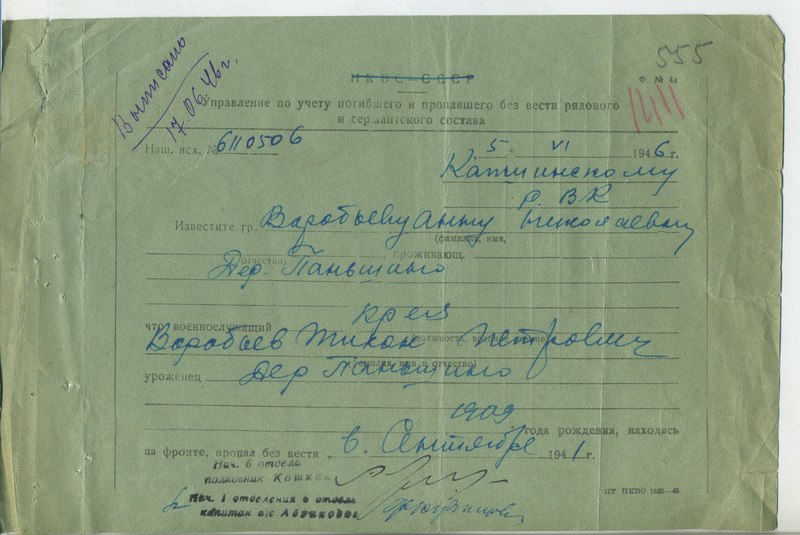 555
Выписано
17.06.46г.
НКВС—СССР
Ф. № 4а
Управление по учету погибшего и пропавшего без вести рядового
и сержантского состава
Наш. исх. № 6110506
5. VI 1946 г.
Р.ВК
Известите гр. Воробьеву Анну Николаевну
(фамилия, имя,
отчество) проживающ.
Дер. Паньшино
что военнослужащий кр-ец
Воробьев Тихон Петрович
(фамилия, имя и отчество)
уроженец Дер Паньшино
1909
года рождения, находясь
на фронте, пропал без вести „ в. Сентябре 1941 г.
Нач. 6 отдела
полковник
Нач. 1 отделения 6 отдела
капитан а/с Абрикосов